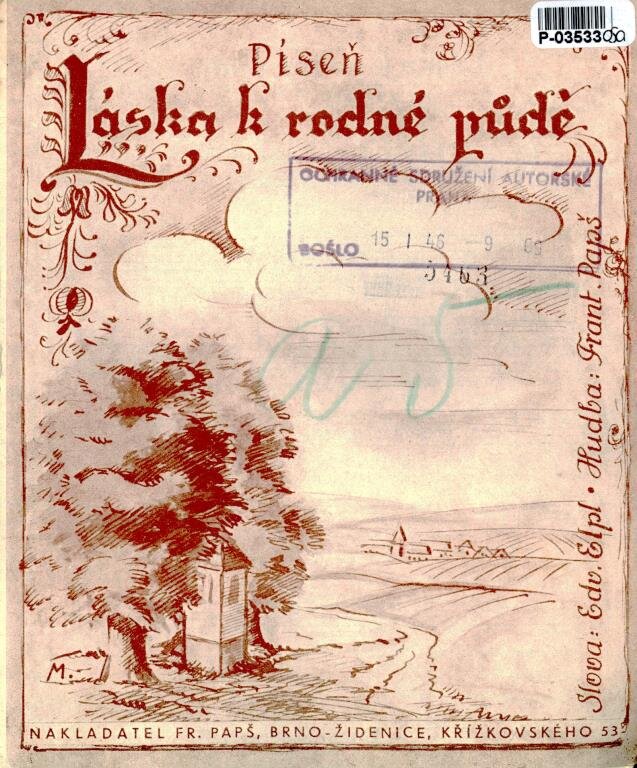 P-03533
Píseň
Láska k rodné půdě
OCHRANNÉ SDRUŽENÍ AUTORSKÉ
PRAHA
DOŠLO 15 I 46 - 9
5463
Slova: Edv. Elpl • Hudba: Frant. Papš
M.
NAKLADATEL FR. PAPŠ, BRNO-ŽIDENICE, KŘÍŽKOVSKÉHO 53